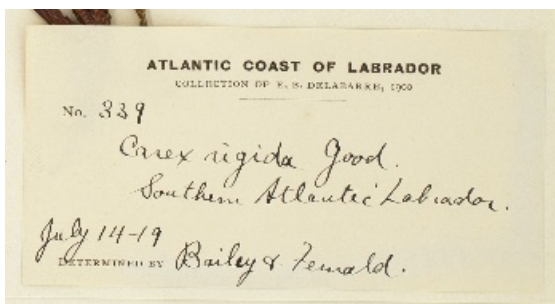 ATLANTIC COAST OF LABRADOR
COLLECTION OF E. B. DELABARRE, 1900
No. 339
Carex rigida Good.
Southern Atlantic Labrador.
July 14-19
DETERMINED BY Bailey & Fernald.